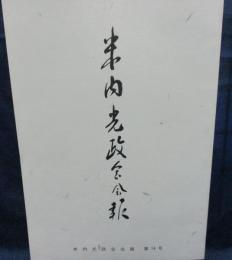 米内光政会会報
米内光政会会報 第16号